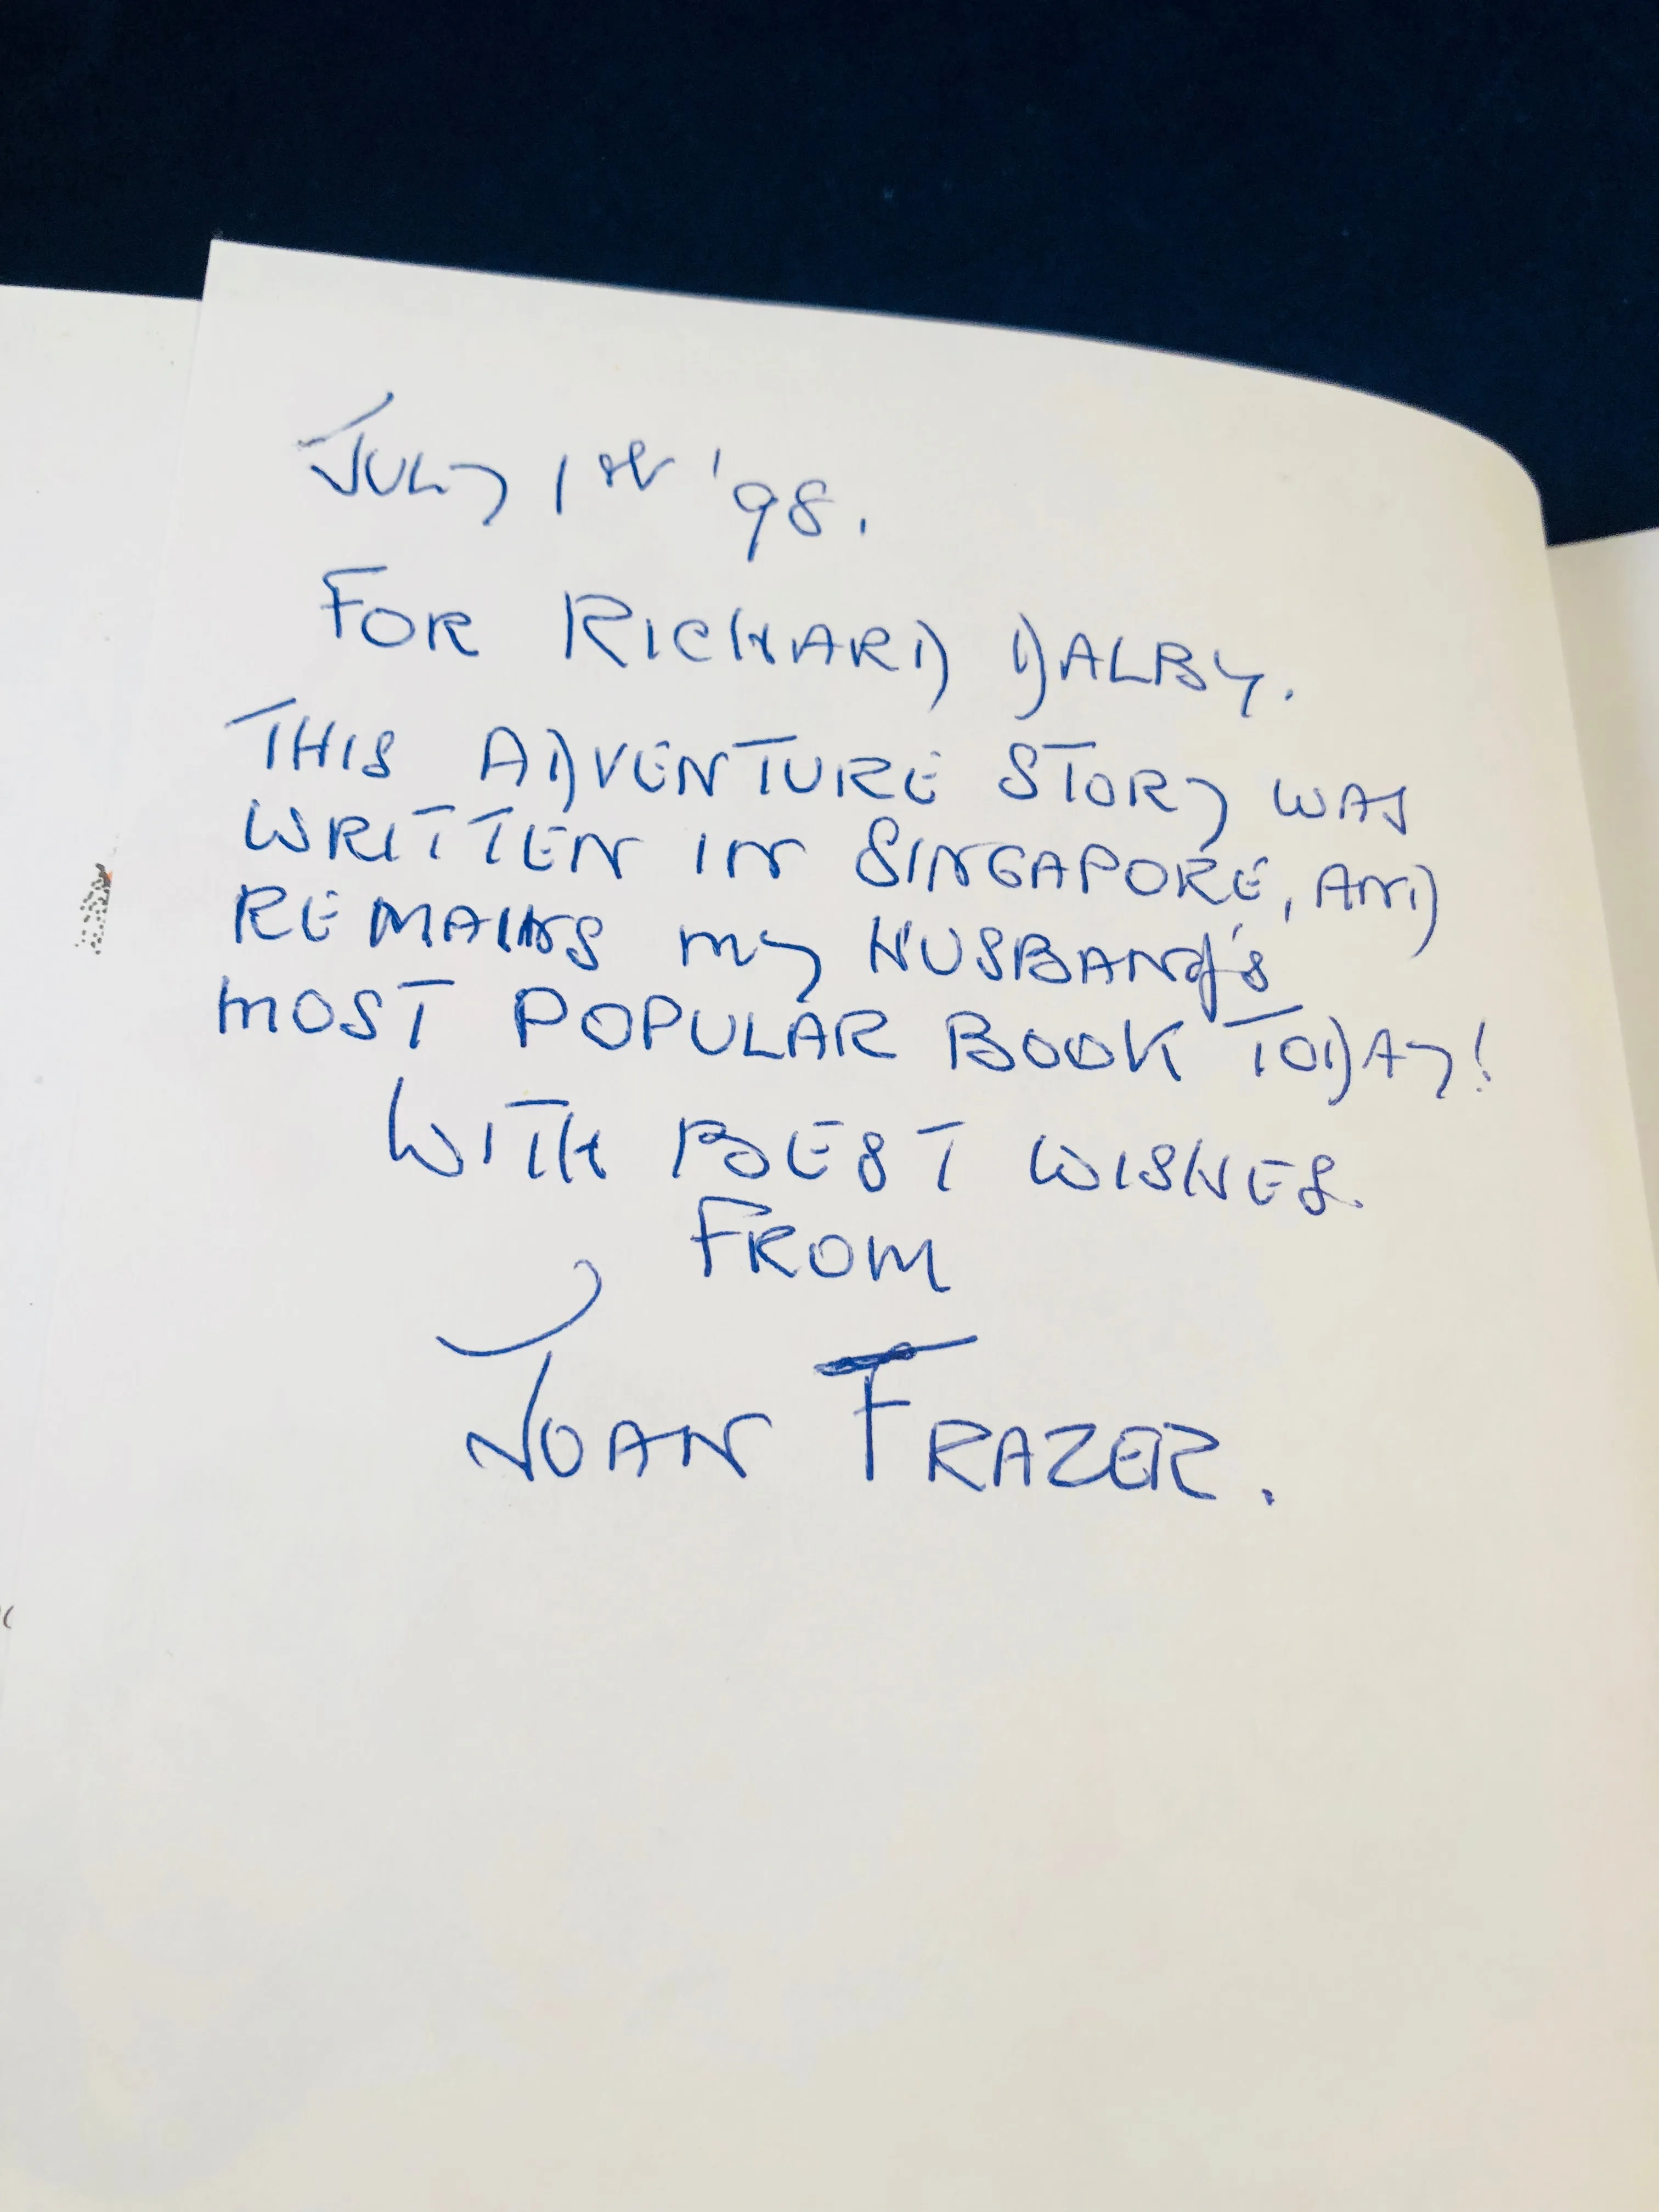 JULY 1ST '98.
FOR RICHARD DALBY.
THIS ADVENTURE STORY WAS
WRITTEN IN SINGAPORE, AND
REMAINS MY HUSBAND'S
MOST POPULAR BOOK TODAY!
WITH BEST WISHES
FROM
JOAN FRAZER.